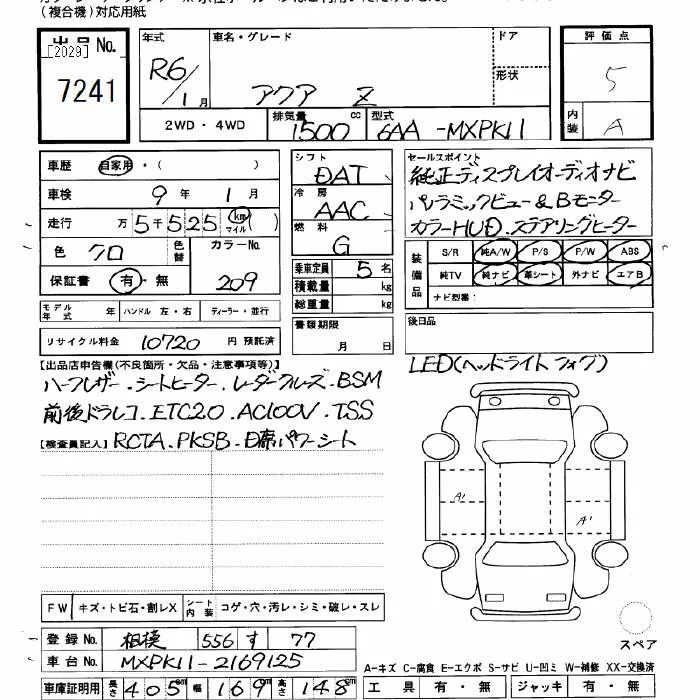 (複合機)対応用紙
出品 No.
[2029]
7241
年式
R6/1月
車名・グレード
アクア Z
ドア
形状
2WD・4WD
排気量
1500 cc
型式
6AA-MXPK11
評価点
5
内装
A
車歴 自家用・( )
車検 9年 1月
走行 万5千525 km マイル ( )
色 クロ
色替
カラーNo.
209
保証書 有・無
モデル年式 年
ハンドル 左・右
ディーラー・並行
リサイクル料金 10720 円 預託済
シフト
DAT
冷房
AAC
燃料
G
乗車定員 5名
積載量 kg
総重量 kg
書類期限
月 日
セールスポイント
純正ディスプレイオーディオナビ
パノラミックビュー&Bモーター
カラーHUD.ステアリングヒーター
装備品
S/R 純A/W P/S P/W ABS
純TV 純ナビ 革シート 外ナビ エアB
ナビ型番:
後日品
LED(ヘッドライト フォグ)
【出品店申告欄(不良箇所・欠品・注意事項等)】
ハーフレザー.シートヒーター.レーダークルーズ.BSM
前後ドラレコ.ETC2.0.AC100V.TSS
【検査員記入】 RCTA.PKSB.D席パワーシート
A1
A1
FW キズ・トビ石・割レX
シート内装 コゲ・穴・汚レ・シミ・破レ・スレ
登録No. 相模 556 す 77
車台No. MXPK11-2169125
車庫証明用 長さ 405cm 幅 169cm 高さ 148cm
スペア
A-キズ C-腐食 E-エクボ S-サビ U-凹ミ W-補修 XX-交換済
工具 有・無 ジャッキ 有・無